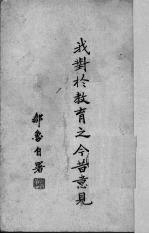 我對於教育之今昔意見
邰爽秋自署